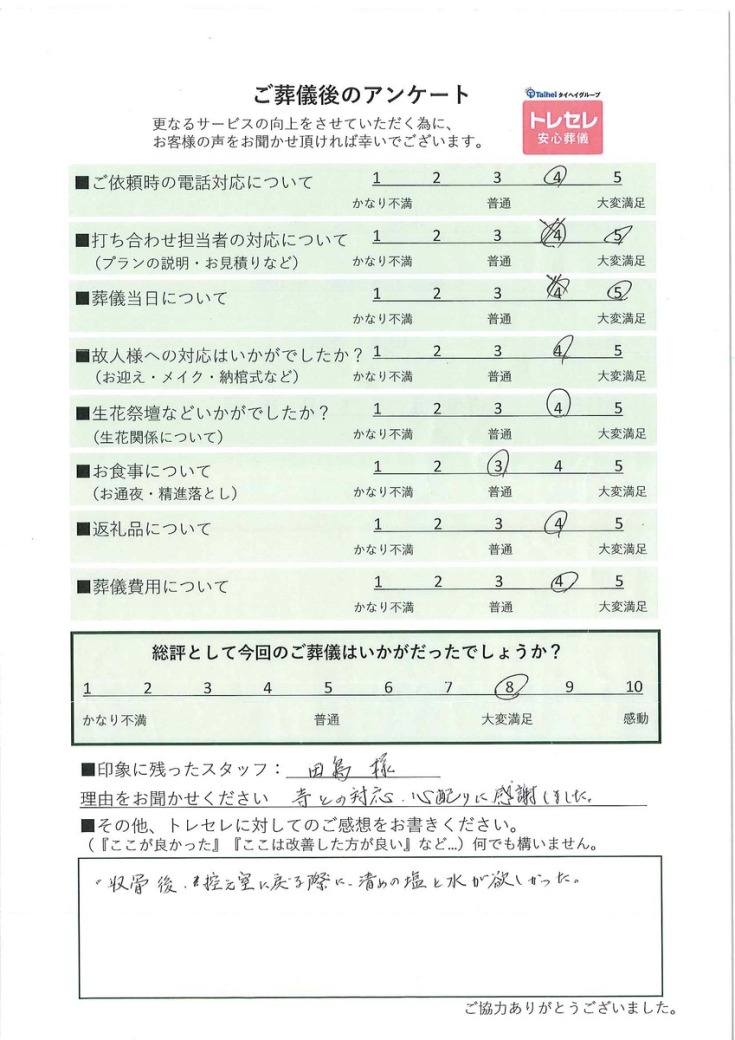 ご葬儀後のアンケート
Taihei タイヘイグループ
トレセレ
安心葬儀
更なるサービスの向上をさせていただく為に、
お客様の声をお聞かせ頂ければ幸いでございます。
■ご依頼時の電話対応について 1 2 3 4 5
かなり不満 普通 大変満足
■打ち合わせ担当者の対応について 1 2 3 4 5
（プランの説明・お見積りなど） かなり不満 普通 大変満足
■葬儀当日について 1 2 3 4 5
かなり不満 普通 大変満足
■故人様への対応はいかがでしたか？ 1 2 3 4 5
（お迎え・メイク・納棺式など） かなり不満 普通 大変満足
■生花祭壇などいかがでしたか？ 1 2 3 4 5
（生花関係について） かなり不満 普通 大変満足
■お食事について 1 2 3 4 5
（お通夜・精進落とし） かなり不満 普通 大変満足
■返礼品について 1 2 3 4 5
かなり不満 普通 大変満足
■葬儀費用について 1 2 3 4 5
かなり不満 普通 大変満足
総評として今回のご葬儀はいかがだったでしょうか？
1 2 3 4 5 6 7 8 9 10
かなり不満 普通 大変満足 感動
■印象に残ったスタッフ： 田島 様
理由をお聞かせください 寺との対応、心配りに感謝しました。
■その他、トレセレに対してのご感想をお書きください。
（『ここが良かった』『ここは改善した方が良い』など...）何でも構いません。
・収骨後、控え室に戻る際に、清めの塩と水が欲しかった。
ご協力ありがとうございました。